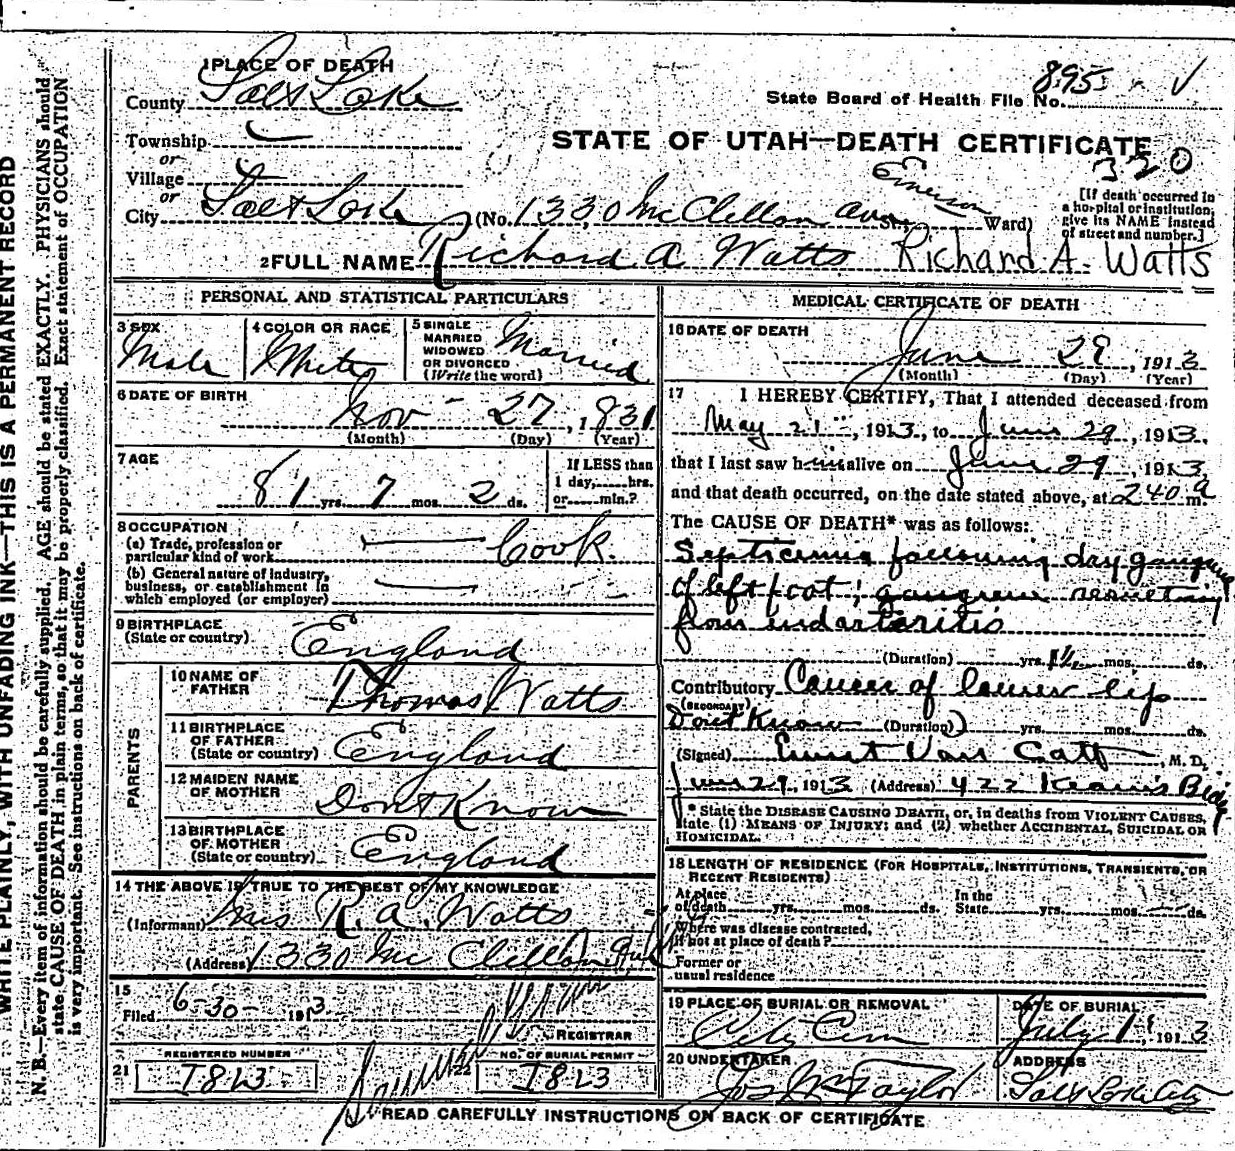 WRITE PLAINLY, WITH UNFADING INK—THIS IS A PERMANENT RECORD
N. B.—Every item of information should be carefully supplied. AGE should be stated EXACTLY. PHYSICIANS should
state CAUSE OF DEATH in plain terms, so that it may be properly classified. Exact statement of OCCUPATION
is very important. See instructions on back of certificate.
1 PLACE OF DEATH
County Salt Lake
895 - V
State Board of Health File No.
Township
or
STATE OF UTAH—DEATH CERTIFICATE
320
Village
or
City Salt Lake (No. 1330 McClellan Ave St.; Emerson Ward)
[If death occurred in
a hospital or institution,
give its NAME instead
of street and number.]
2 FULL NAME Richard A Watts Richard A. Watts
PERSONAL AND STATISTICAL PARTICULARS
3 SEX Male
4 COLOR OR RACE White
5 SINGLE
MARRIED
WIDOWED
OR DIVORCED
(Write the word) Married
6 DATE OF BIRTH
Nov - 27, 1831
(Month) (Day) (Year)
7 AGE
81 yrs. 7 mos. 2 ds.
If LESS than
1 day, hrs.
or min.?
8 OCCUPATION
(a) Trade, profession or
particular kind of work Cook.
(b) General nature of industry,
business, or establishment in
which employed (or employer)
9 BIRTHPLACE
(State or country) England
PARENTS
10 NAME OF
FATHER Thomas Watts
11 BIRTHPLACE
OF FATHER
(State or country) England
12 MAIDEN NAME
OF MOTHER Dont Know
13 BIRTHPLACE
OF MOTHER
(State or country) England
14 THE ABOVE IS TRUE TO THE BEST OF MY KNOWLEDGE
(Informant) Mrs R. A. Watts
(Address) 1330 McClellan
15
Filed 6-30- 1913
REGISTRAR
21 REGISTERED NUMBER I8L3
22 NO. OF BURIAL PERMIT I8L3
MEDICAL CERTIFICATE OF DEATH
16 DATE OF DEATH
June 29, 1913
(Month) (Day) (Year)
17 I HEREBY CERTIFY, That I attended deceased from
May 21, 1913, to June 29, 1913,
that I last saw him alive on June 29, 1913,
and that death occurred, on the date stated above, at 240 a m.
The CAUSE OF DEATH* was as follows:
Septicemia following dry gangrene
of left foot; gangrene resulting
from endarteritis
(Duration) yrs. 1½ mos. ds.
Contributory Cancer of lower lip
(SECONDARY)
Dont Know (Duration) yrs. mos. ds.
(Signed) Ernst Van Cott, M. D.
June 29, 1913 (Address) 422 Kearns Bldg
* State the DISEASE CAUSING DEATH, or, in deaths from VIOLENT CAUSES,
state (1) MEANS OF INJURY; and (2) whether ACCIDENTAL, SUICIDAL OR
HOMICIDAL.
18 LENGTH OF RESIDENCE (FOR HOSPITALS, INSTITUTIONS, TRANSIENTS, OR
RECENT RESIDENTS)
At place
of death yrs. mos. ds. In the
State yrs. mos. ds.
Where was disease contracted,
if not at place of death?
Former or
usual residence
19 PLACE OF BURIAL OR REMOVAL
City Cem
DATE OF BURIAL
July 1, 1913
20 UNDERTAKER
Jos Wm Taylor
ADDRESS
Salt Lake City
READ CAREFULLY INSTRUCTIONS ON BACK OF CERTIFICATE